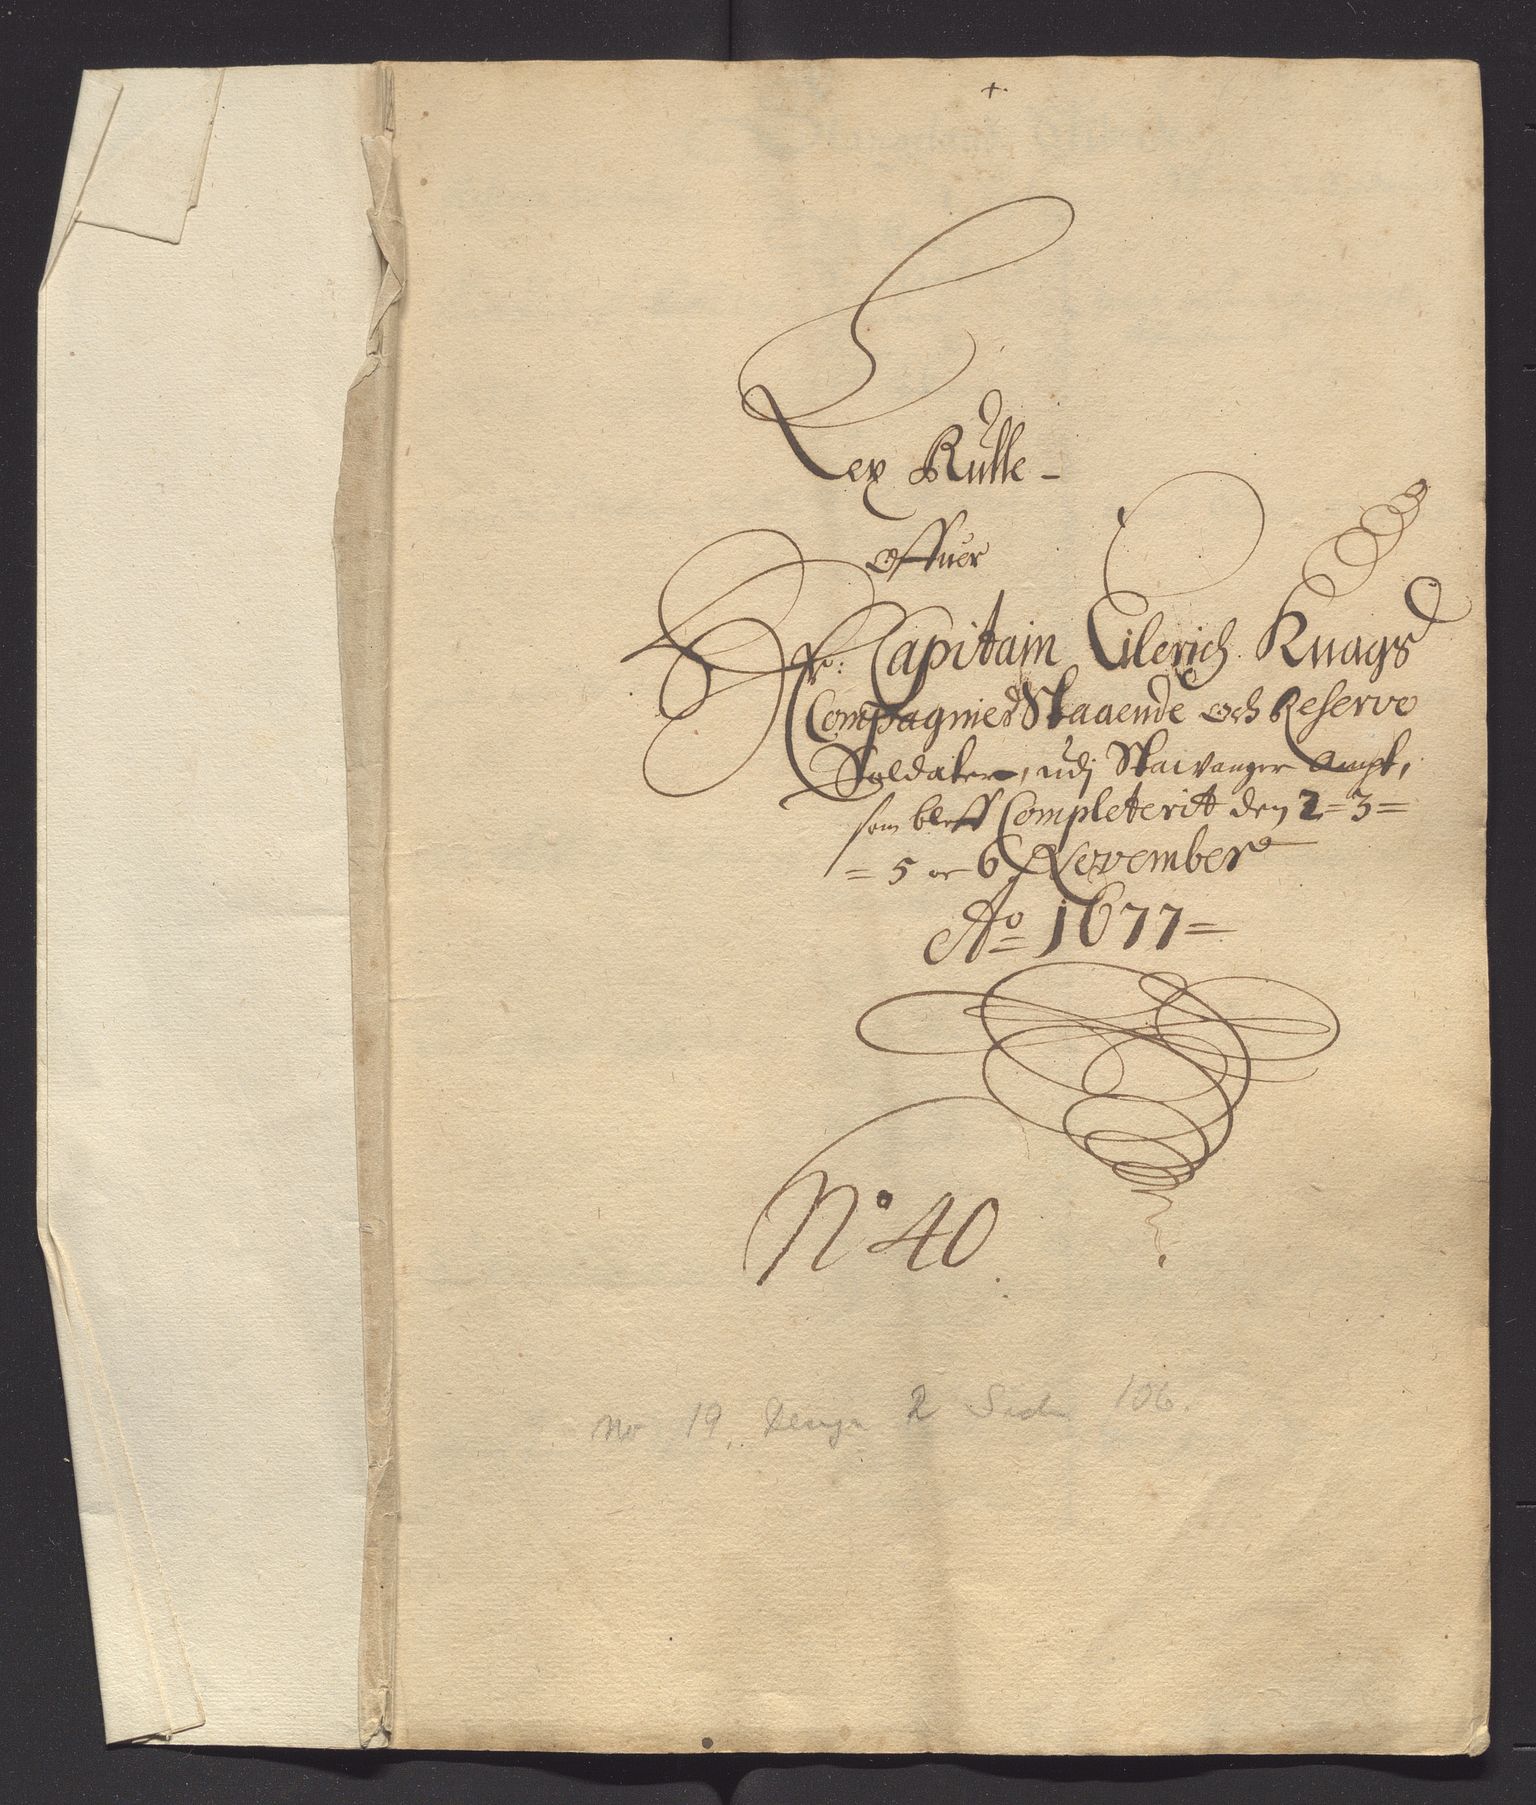 +
Lex Rulle -
offuer
Hr: Capitain Eilerich Knags
Compagnies Staaende och Reserve
Soldater, udj Stawanger Ampt,
som bleff Completerit den 2=3=
=5 oc 6 November
Ao 1677=
No 40
No 19. 2 106.